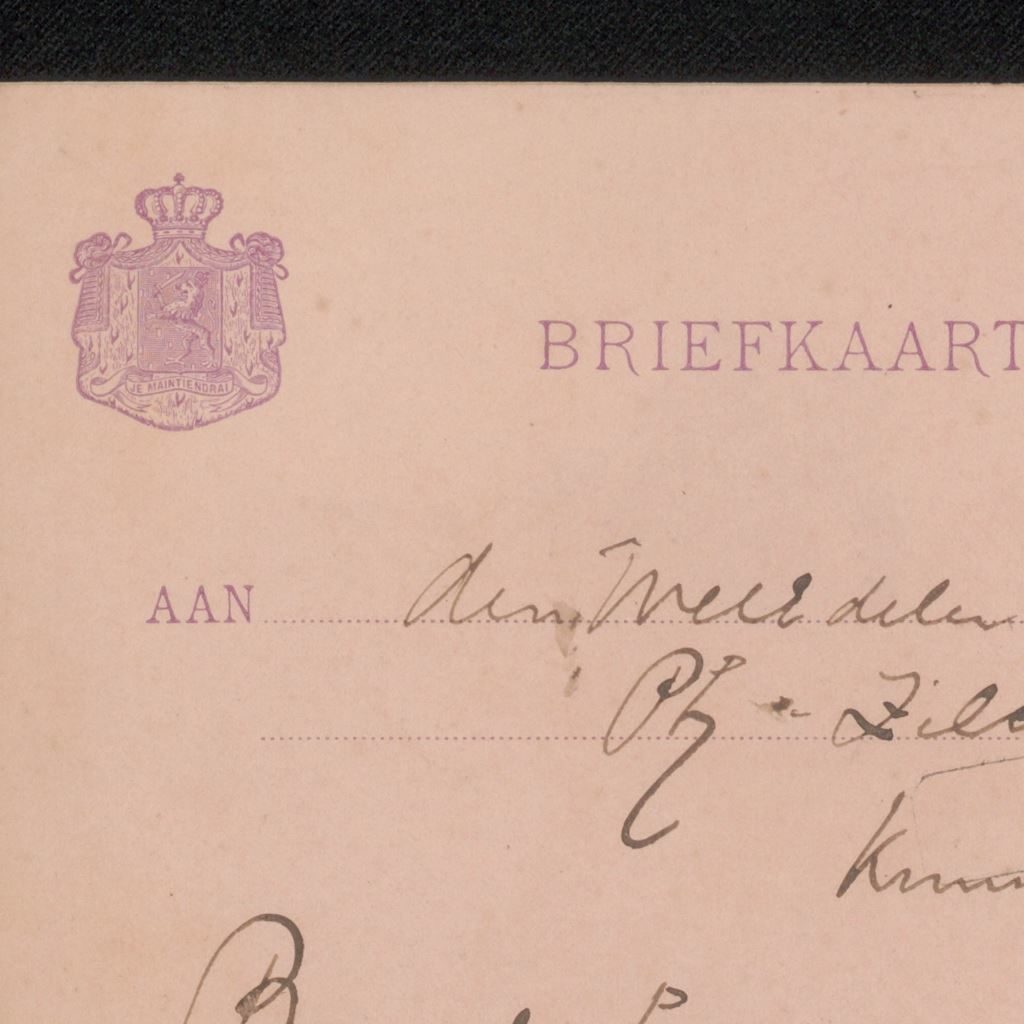 JE MAINTIENDRAI
BRIEFKAART
AAN den Weledelen
Ph. Zilc
Kun